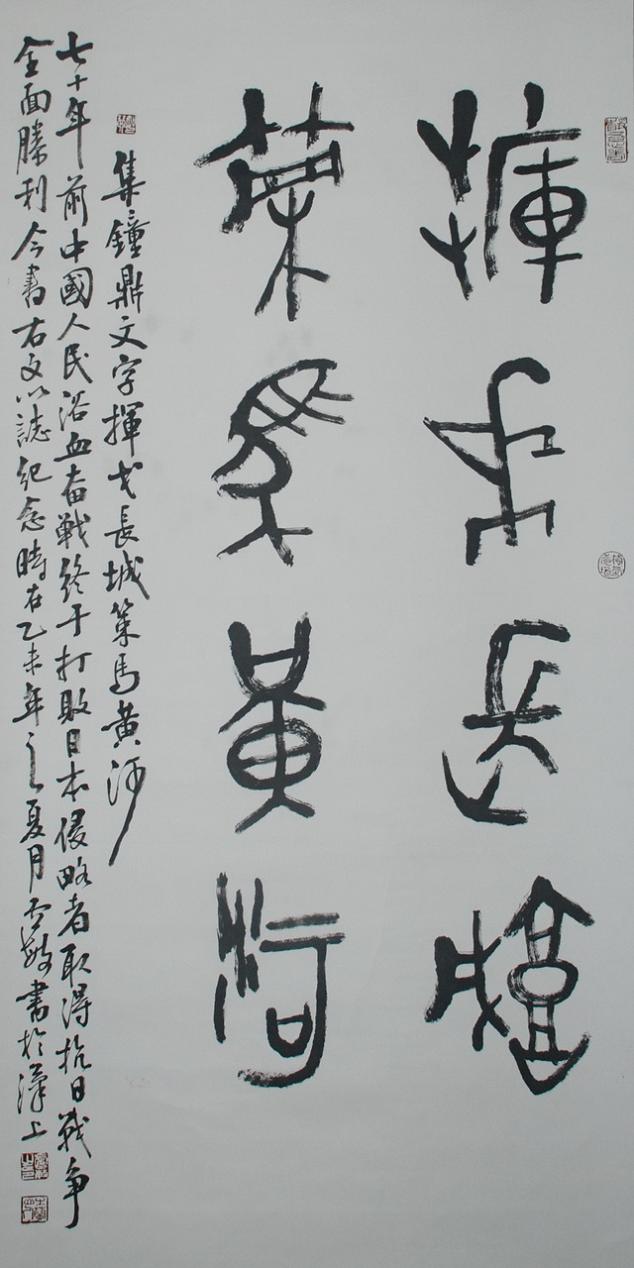 揮戈長城
策馬黃河
集鐘鼎文字揮戈長城策馬黄河
七十年前中國人民浴血奋戰終于打敗日本侵略者取得抗日戰争
全面勝利今書右文以誌紀念時在乙未年之夏月書於漢上